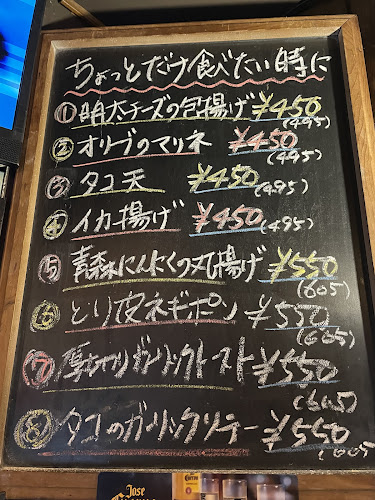 ちょっとだけ食べたい時に
① 明太チーズの包揚げ ¥450
(495)
② オリーブのマリネ ¥450
(495)
③ タコ天 ¥450
(495)
④ イカ揚げ ¥450
(495)
⑤ 青森にんにくの丸揚げ ¥550
(605)
⑥ とり皮ネギポン ¥550
(605)
⑦ 厚切りガーリックトースト ¥550
(605)
⑧ タコのガーリックソテー ¥550
(605
Jose